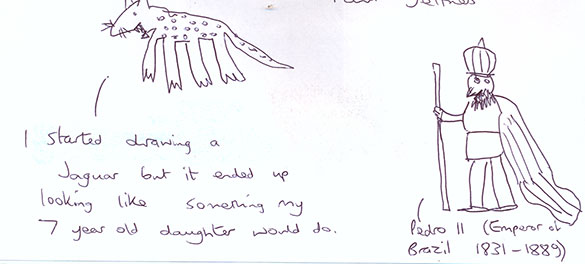 I started drawing a
Jaguar but it ended up
looking like something my
7 year old daughter would do.
Pedro II (Emperor of
Brazil 1831-1889)